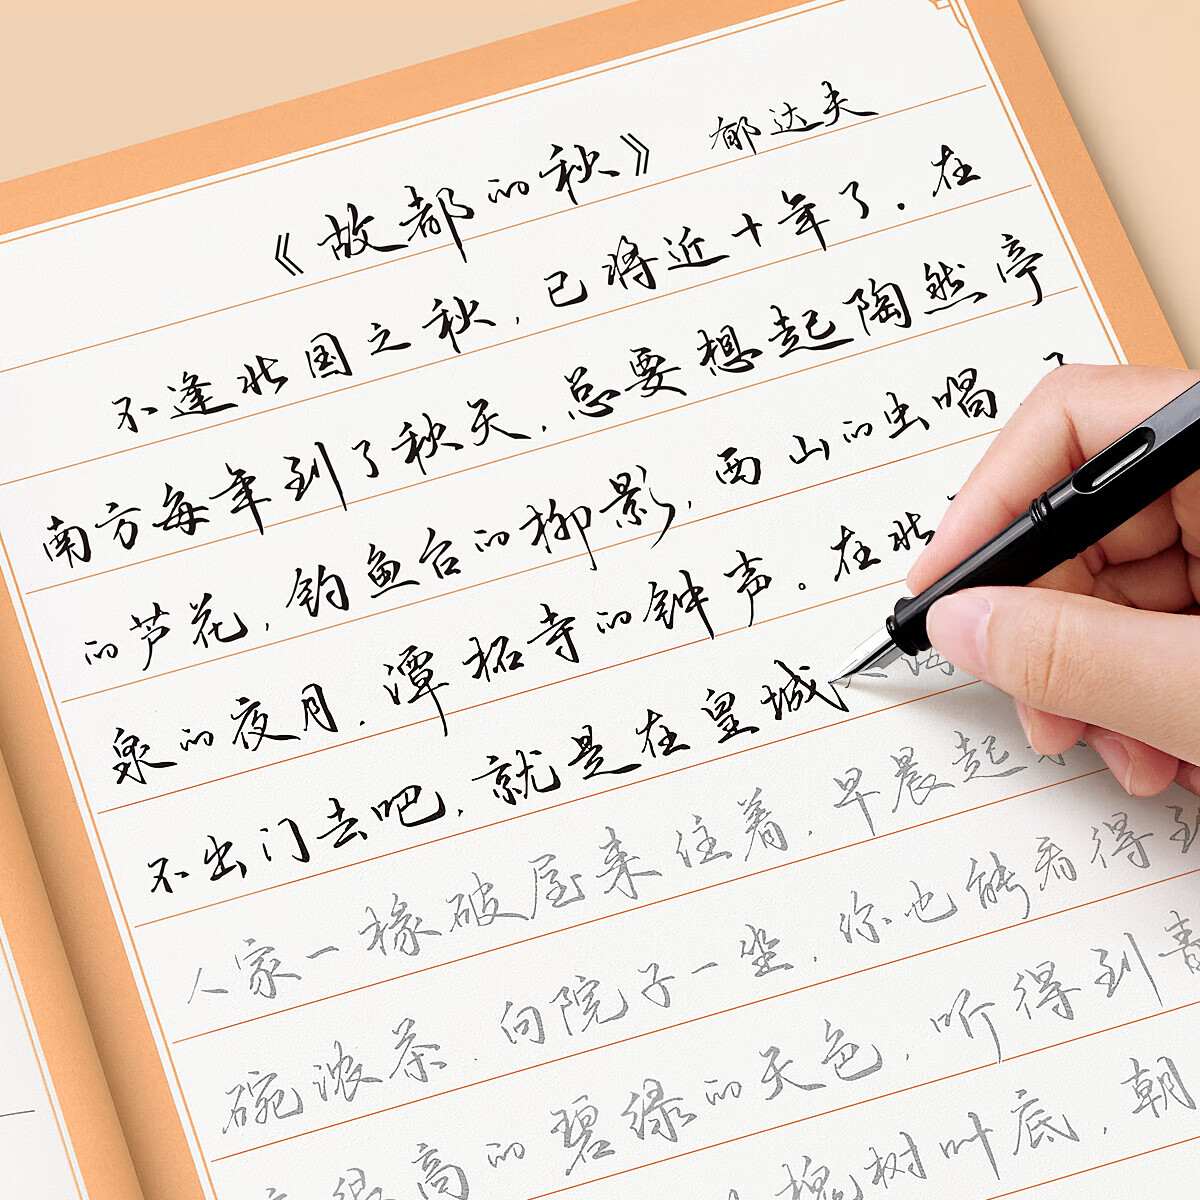 《故都的秋》 郁达夫
不逢北国之秋，已将近十年了。在
南方每年到了秋天，总要想起陶然亭
的芦花，钓鱼台的柳影，西山的虫唱，
泉的夜月，潭柘寺的钟声。在北
不出门去吧，就是在皇城
人家一椽破屋来住着，早晨起来
碗浓茶，向院子一坐，你也能看得到
很高的碧绿的天色，听得到青
槐树叶底，朝